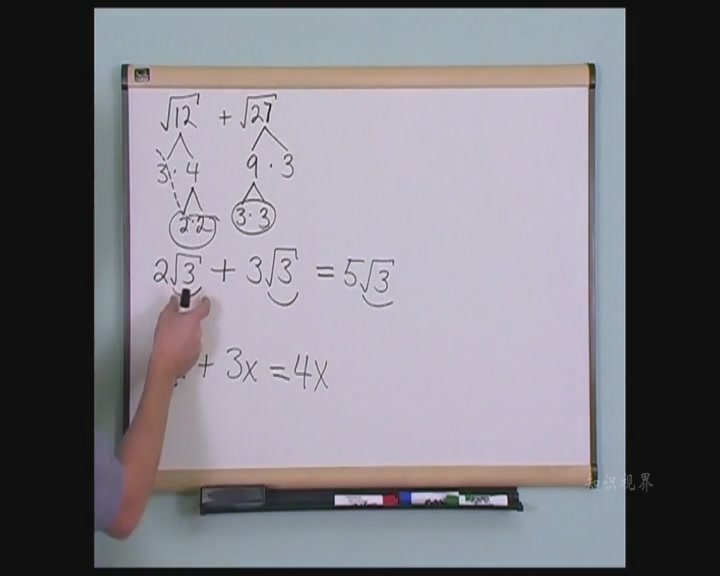 √12 + √27
3 · 4 9 · 3
2·2 3·3
2√3 + 3√3 = 5√3
+ 3x = 4x
知识视界